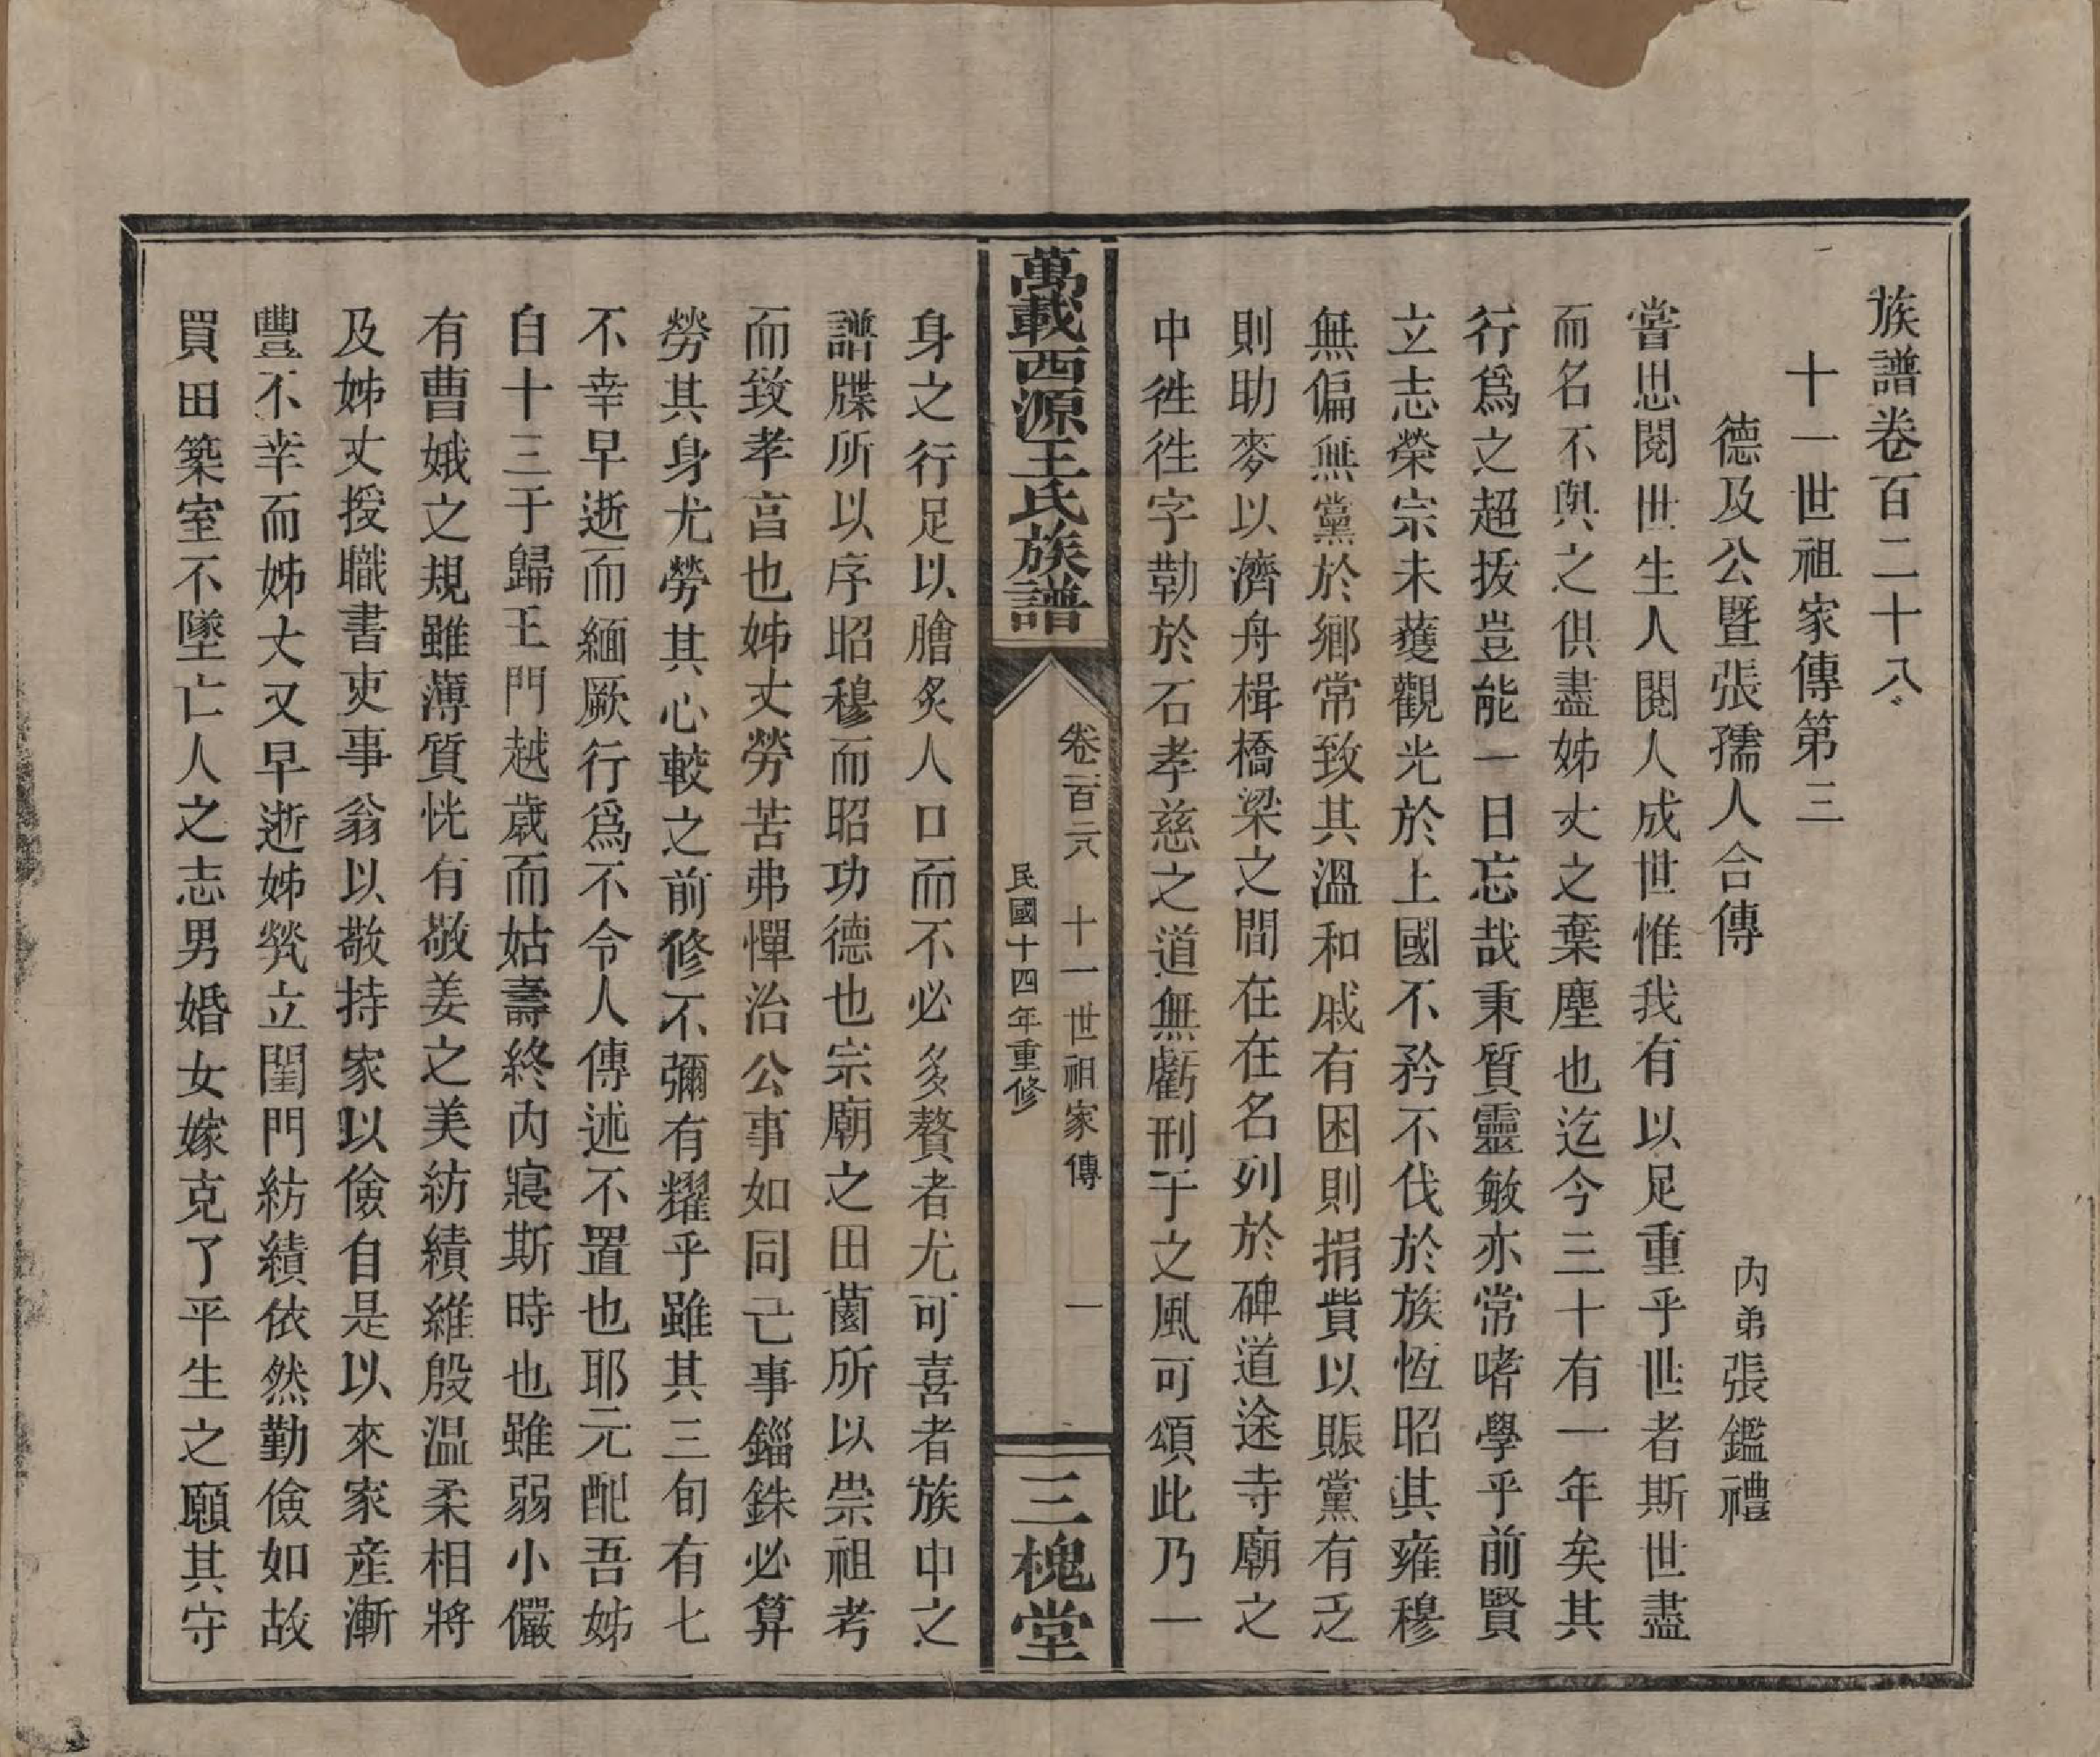 族譜卷百二十八
十一世祖家傳第三
德及公暨張孺人合傳
內弟張鑑禮
嘗思閱世生人閱人成世惟我有以足重乎世者斯世盡
而名不與之俱盡姊丈之棄塵也迄今三十有一年矣其
行爲之超拔豈能一日忘哉秉質靈敏亦常嗜學乎前賢
立志榮宗未獲觀光於上國不矜不伐於族恆昭其雍穆
無偏無黨於鄉常致其溫和戚有困則捐貲以賑黨有乏
則助麥以濟舟楫橋梁之間在在名列於碑道途寺廟之
中徃徃字勒於石孝慈之道無虧刑于之風可頌此乃一
萬載西源王氏族譜
卷一百二八 十一世祖家傳 一
民國十四年重修
三槐堂
身之行足以膾炙人口而不必多贅者尤可喜者族中之
譜牒所以序昭穆而昭功德也宗廟之田薗所以崇祖考
而致孝亯也姊丈勞苦弗憚治公事如同己事錙銖必算
勞其身尤勞其心較之前修不彌有耀乎雖其三旬有七
不幸早逝而緬厥行爲不令人傳述不置也耶元配吾姊
自十三于歸王門越歲而姑壽終內寢斯時也雖弱小儼
有曹娥之規雖薄質恍有敬姜之美紡績維殷温柔相將
及姊丈授職書吏事翁以敬持家以儉自是以來家産漸
豐不幸而姊丈又早逝姊煢立閨門紡績依然勤儉如故
買田築室不墜亡人之志男婚女嫁克了平生之願其守